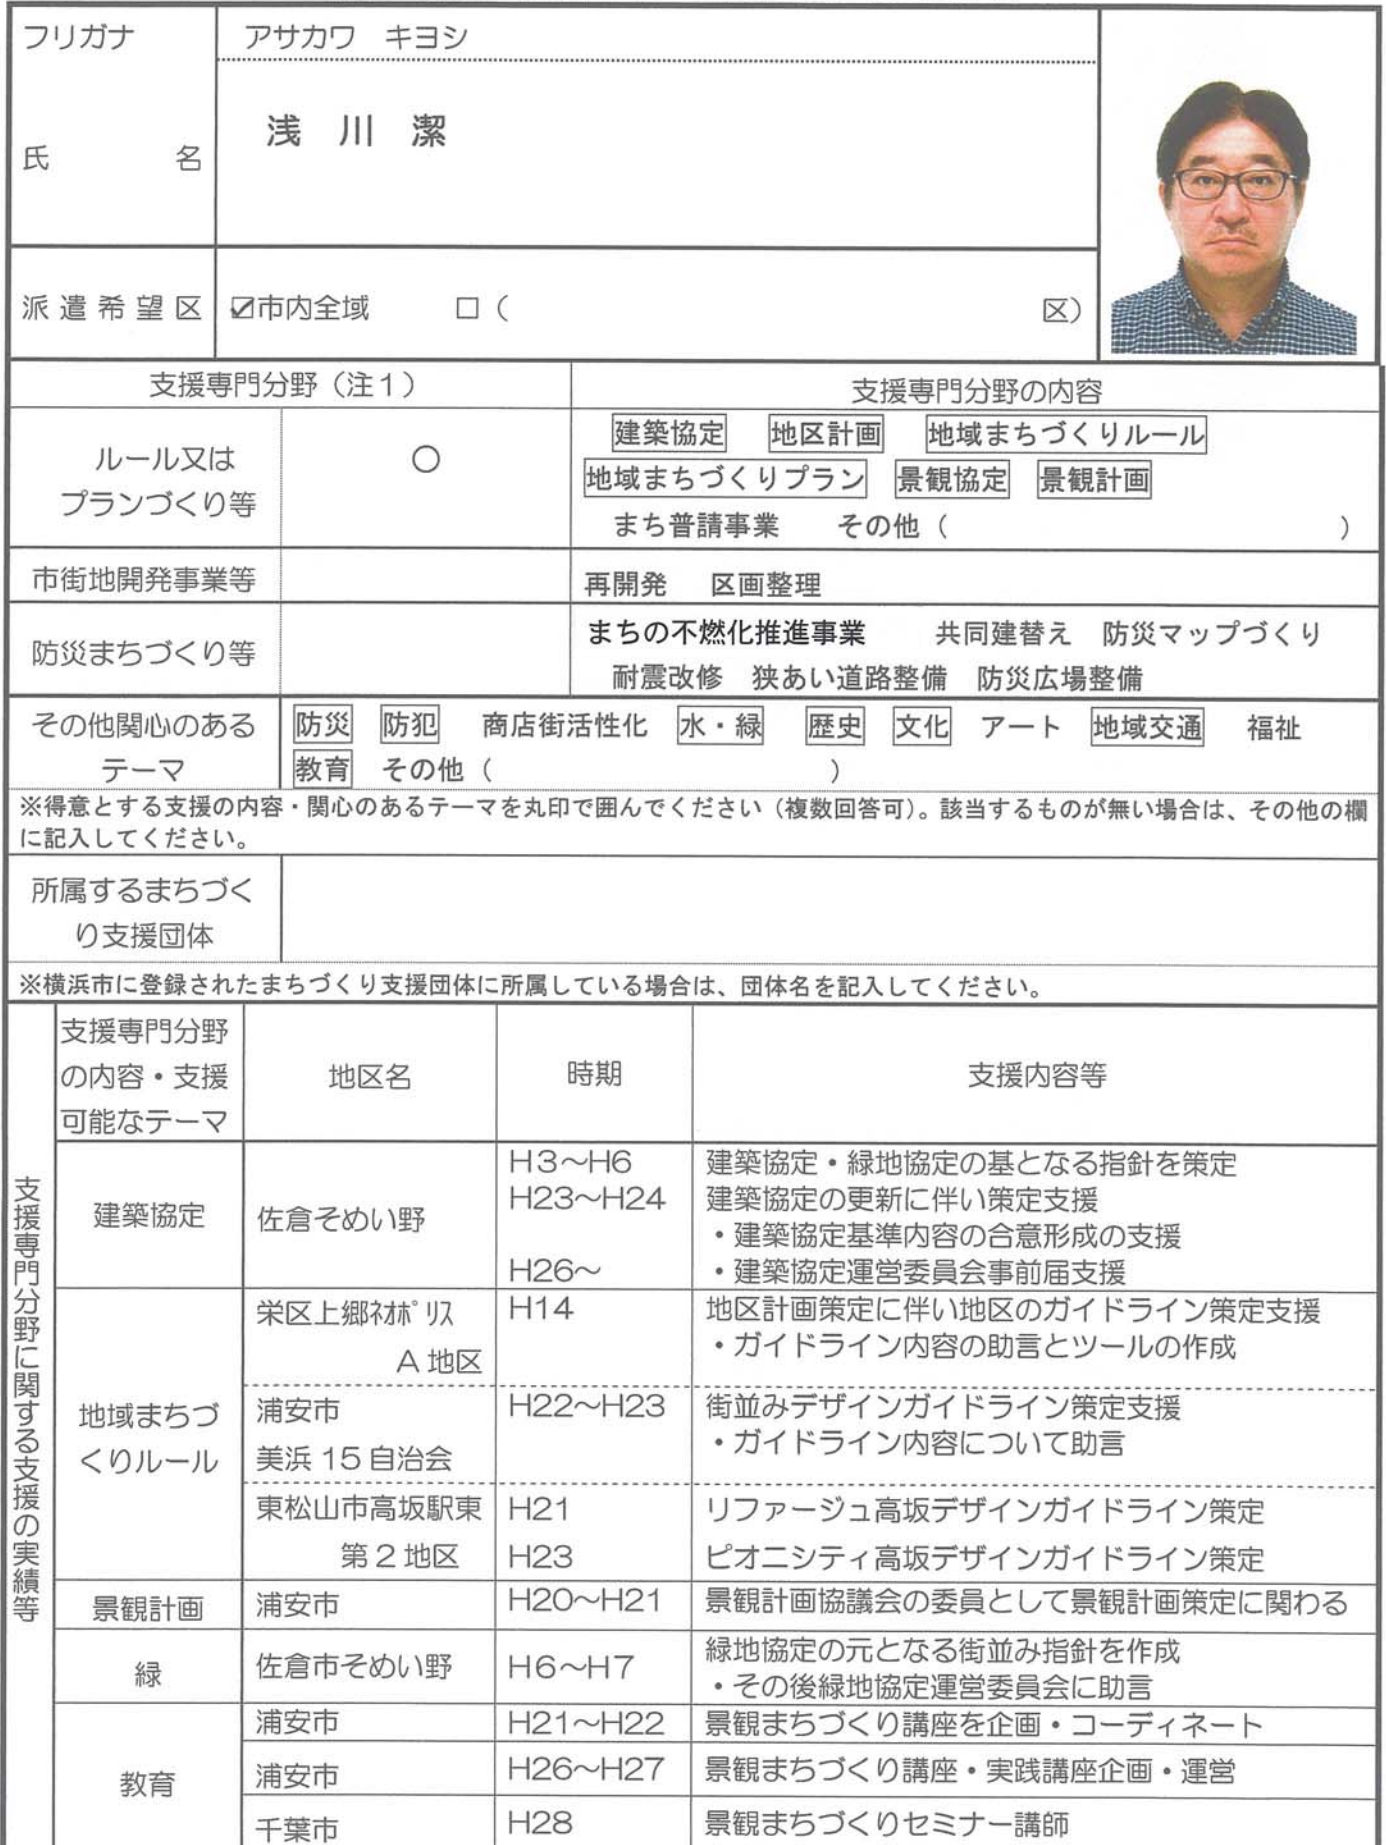 フリガナ
アサカワ　キヨシ
氏　名
浅　川　潔
派遣希望区
☑市内全域　□（　区）
支援専門分野（注１）
支援専門分野の内容
ルール又は
プランづくり等
○
建築協定　地区計画　地域まちづくりルール
地域まちづくりプラン　景観協定　景観計画
まち普請事業　その他（　）
市街地開発事業等
再開発　区画整理
防災まちづくり等
まちの不燃化推進事業　共同建替え　防災マップづくり
耐震改修　狭あい道路整備　防災広場整備
その他関心のある
テーマ
防災　防犯　商店街活性化　水・緑　歴史　文化　アート　地域交通　福祉
教育　その他（　）
※得意とする支援の内容・関心のあるテーマを丸印で囲んでください（複数回答可）。該当するものが無い場合は、その他の欄
に記入してください。
所属するまちづく
り支援団体
※横浜市に登録されたまちづくり支援団体に所属している場合は、団体名を記入してください。
支援専門分野に関する支援の実績等
支援専門分野
の内容・支援
可能なテーマ
地区名
時期
支援内容等
建築協定
佐倉そめい野
H3～H6
建築協定・緑地協定の基となる指針を策定
H23～H24
建築協定の更新に伴い策定支援
・建築協定基準内容の合意形成の支援
H26～
・建築協定運営委員会事前届支援
地域まちづ
くりルール
栄区上郷ﾈｵﾎﾟﾘｽ
A地区
H14
地区計画策定に伴い地区のガイドライン策定支援
・ガイドライン内容の助言とツールの作成
浦安市
美浜15自治会
H22～H23
街並みデザインガイドライン策定支援
・ガイドライン内容について助言
東松山市高坂駅東
第２地区
H21
リファージュ高坂デザインガイドライン策定
H23
ピオニシティ高坂デザインガイドライン策定
景観計画
浦安市
H20～H21
景観計画協議会の委員として景観計画策定に関わる
緑
佐倉市そめい野
H6～H7
緑地協定の元となる街並み指針を作成
・その後緑地協定運営委員会に助言
教育
浦安市
H21～H22
景観まちづくり講座を企画・コーディネート
浦安市
H26～H27
景観まちづくり講座・実践講座企画・運営
千葉市
H28
景観まちづくりセミナー講師